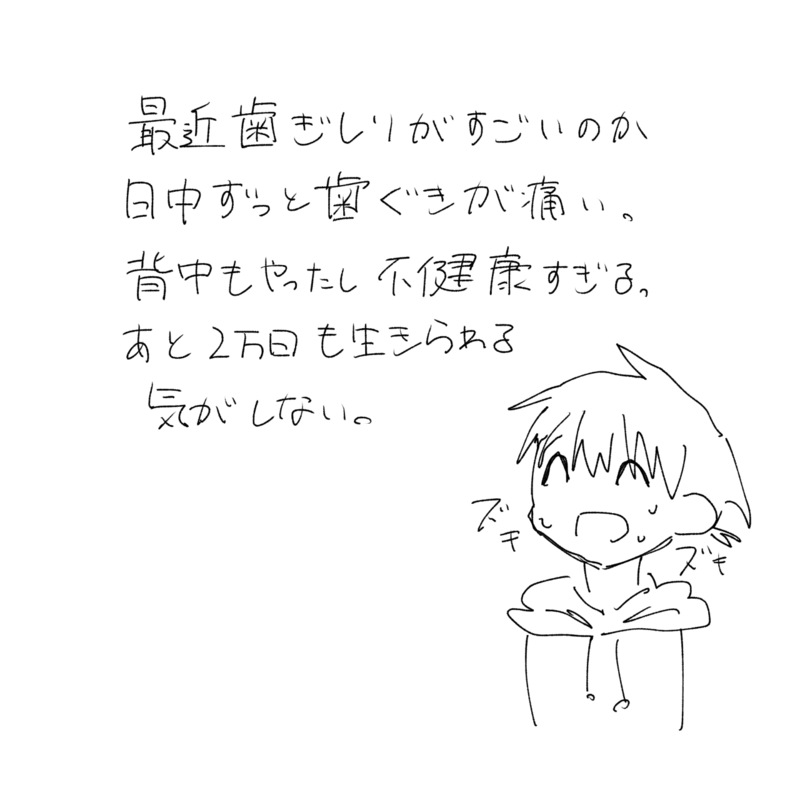 最近歯ぎしりがすごいのか
日中ずっと歯ぐきが痛い。
背中もやったし不健康すぎる。
あと2万日も生きられる
気がしない。
ズキ
ズキ